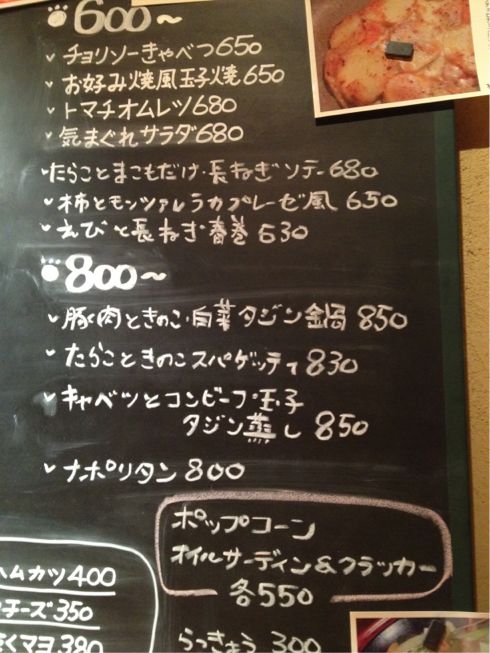 600〜
チョリソーきゃべつ650
お好み焼風玉子焼650
トマチオムレツ680
気まぐれサラダ680
たらことまこもだけ・長ねぎソテー680
柿とモッツァレラカプレーゼ風 650
えびと長ねぎ春巻 630
800〜
豚肉ときのこ・白菜タジン鍋 850
たらこときのこスパゲッティ 830
キャベツとコンビーフ・玉子
タジン蒸し 850
ナポリタン 800
ポップコーン
オイルサーディン&クラッカー
各550
ハムカツ 400
チーズ 350
マヨ 380
らっきょう 300